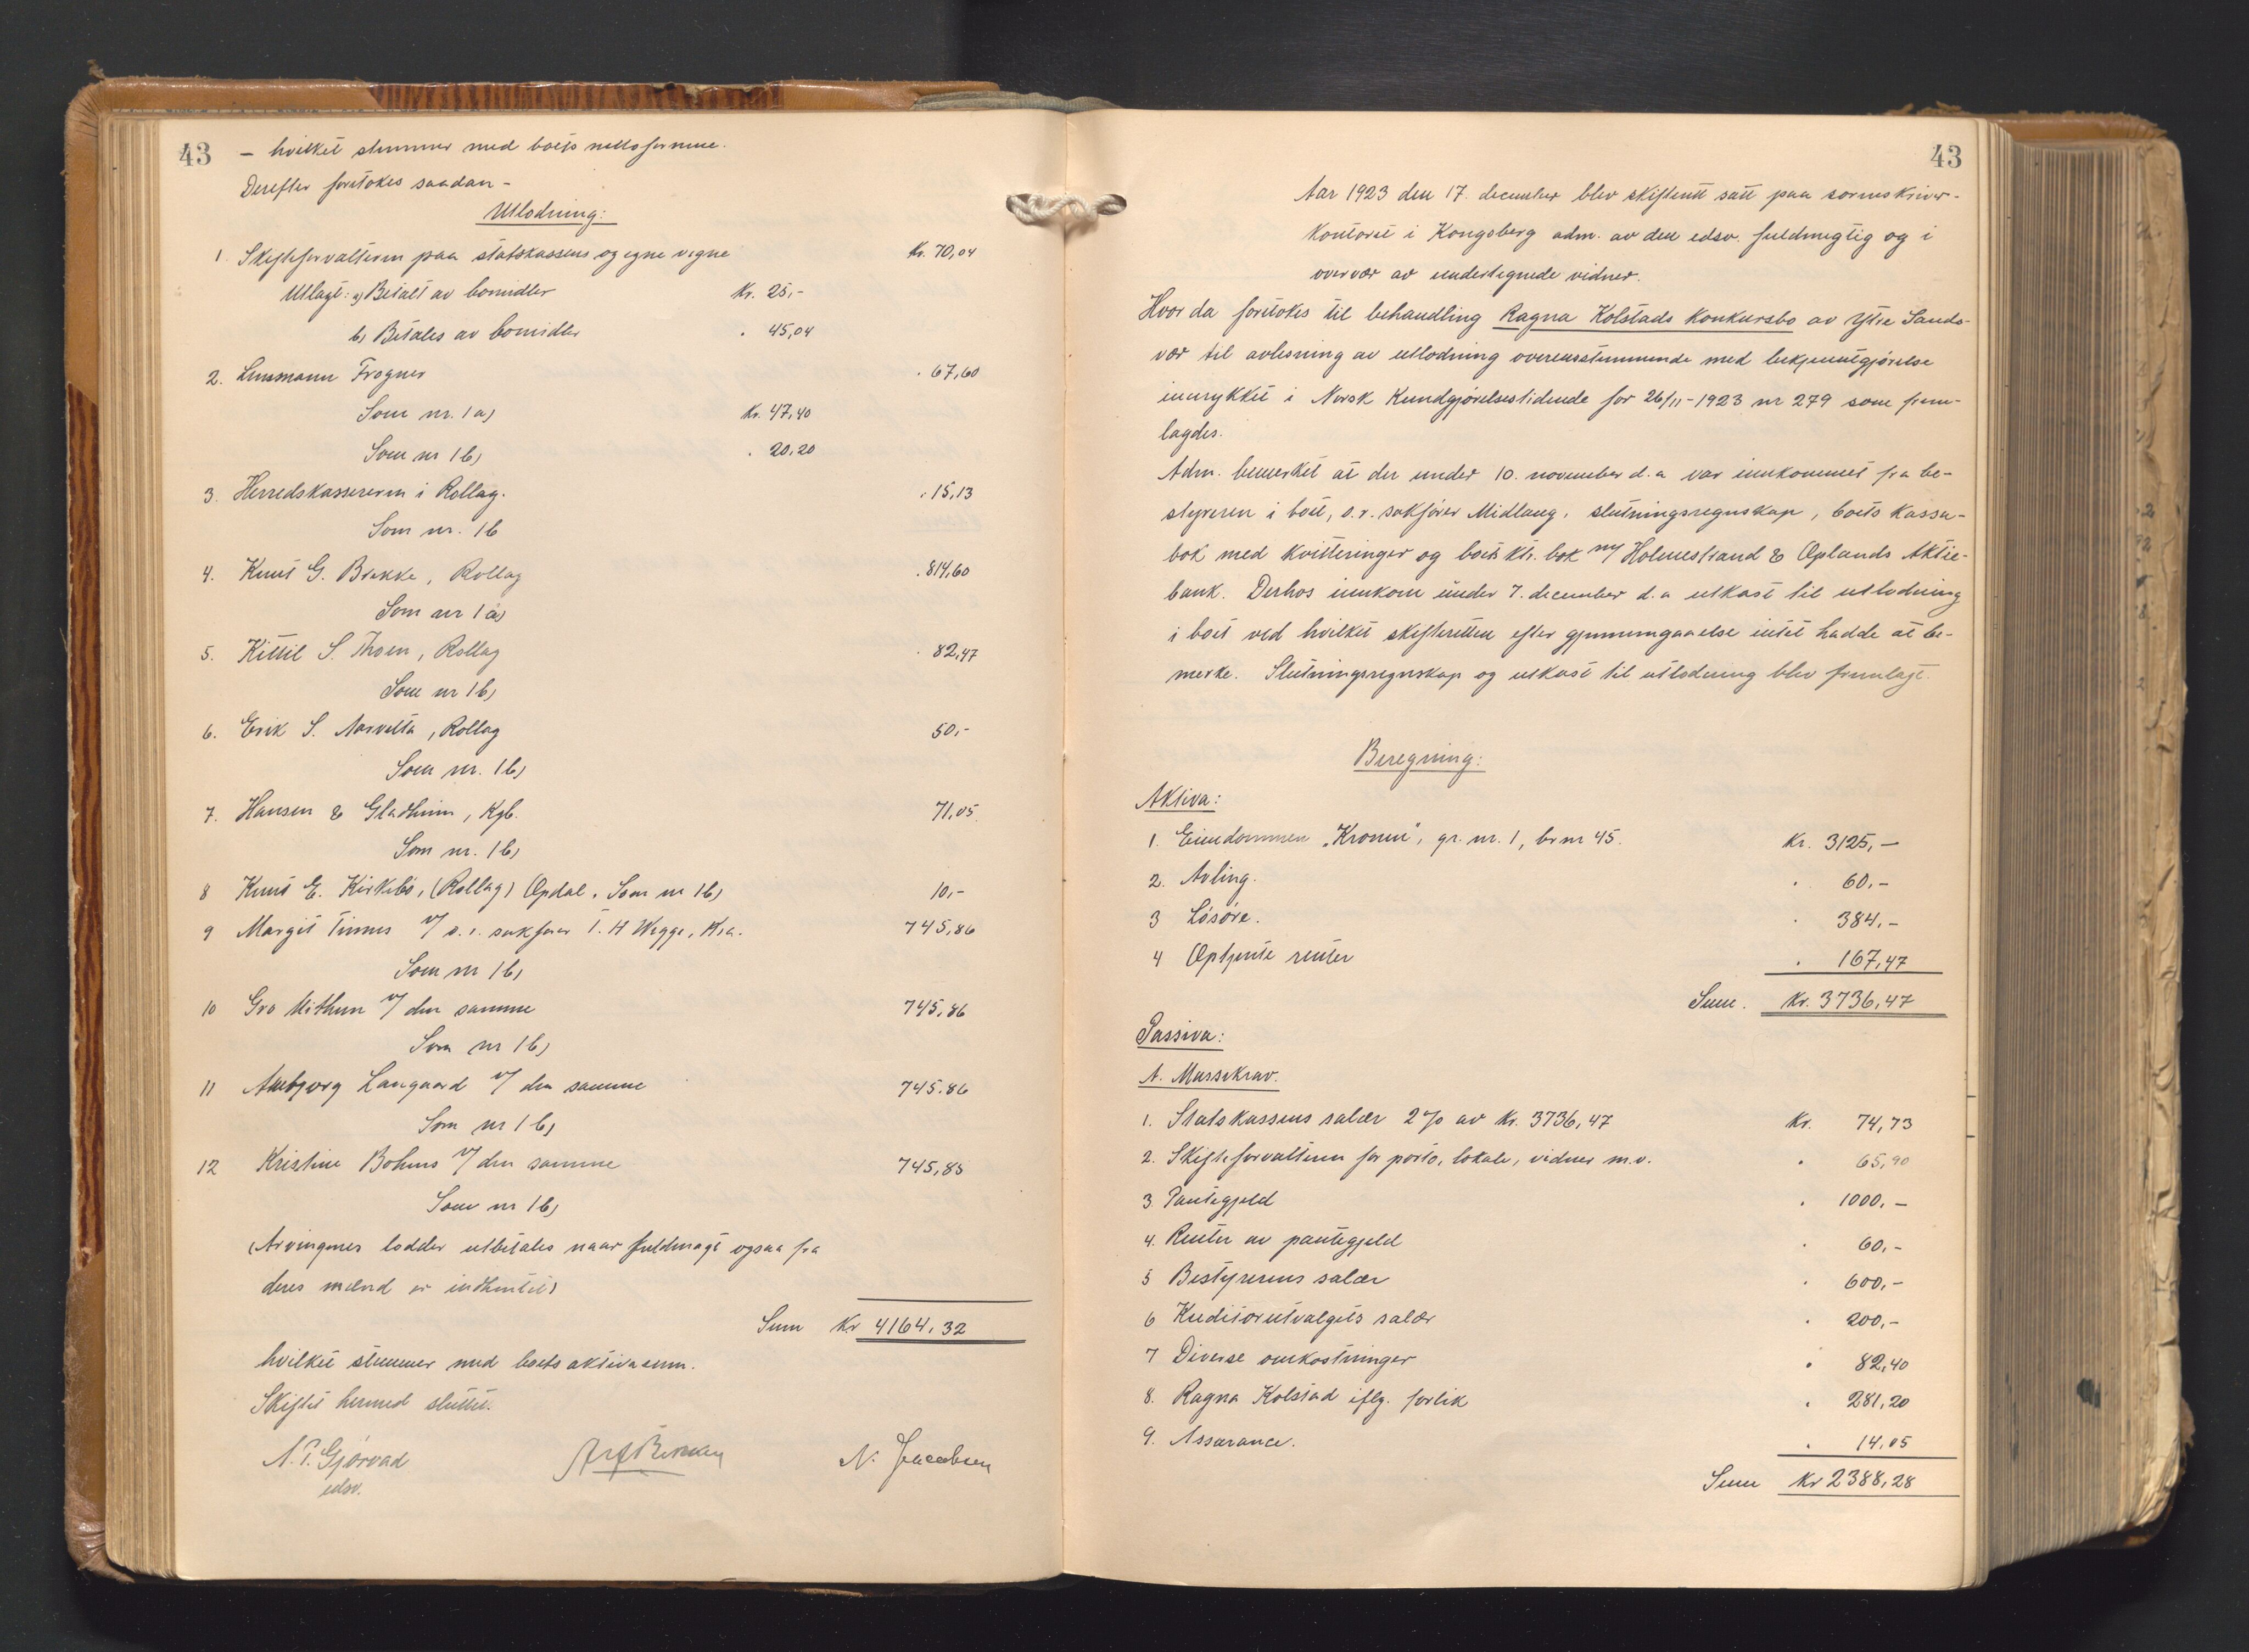 43 — hvilket stemmer med boets nettoformue.
Derefter foretokes saadan -
Utlodning:
1. Skifteforvalteren paa statskassens og egne vegne Kr. 70,04
Utlagt: a) Betalt av bomidler Kr. 25,-
b) Betales av bomidler " 45,04
2. Lensmann Frogner " 67,60
Som nr. 1 a) Kr. 47,40
Som nr 1 b) " 20,20
3. Herredskassereren i Rollag. " 15,13
Som nr. 1 b
4. Knut G. Brekke, Rollag " 814,60
Som nr 1 a)
5. Kittil S. Thoen, Rollag " 82,47
Som nr 1 b)
6. Erik S. Aarvelta, Rollag 50,-
Som nr. 1 b)
7. Hansen & Gladheim, Kgb. 71,05
Som nr. 1 b)
8 Knut E. Kirkebø, (Rollag) Opdal. Som nr 1 b) 10,-
9 Margit Tinnes v/ o.r. sakfører T. H Wegge, Kra. 745,86
Som nr 1 b)
10 Gro Mithun v/ den samme 745,86
Som nr 1 b)
11 Anbjørg Langaard v/ den samme 745,86
Som nr 1 b)
12 Kristine Bohus v/ den samme 745,85
Som nr 1 b)
(Arvingenes lodder utbetales naar fuldmagt ogsaa fra
deres mænd er indhentet)
Sum Kr 4164,32
hvilket stemmer med boets aktivasum.
Skiftet hermed sluttet.
A. P. Gjørvad N. Jacobsen
edsv.
43
Aar 1923 den 17. december blev skifterett satt paa sorenskriver-
kontoret i Kongsberg adm. av den edsv. fuldmegtig og i
overvær av undertegnede vidner.
Hvor da foretokes til behandling Ragna Kolstads konkursbo av Ytre Sands-
vær til avlesning av utlodning overensstemmende med bekjentgjørelse
innrykket i Norsk Kundgjørelsestidende for 26/11-1923 nr 279 som frem-
lagdes.
Adm. bemerket at der under 10. november d.a var innkommet fra be-
styreren i boet, o.r. sakfører Midlaug, slutningsregnskap, boets kasse-
bok med kvitteringer og boets ktr. bok m/ Holmestrand & Oplands Aktie-
bank. Derhos innkom under 7. december d.a utkast til utlodning
i boet ved hvilket skifteretten efter gjennemgaaelse intet hadde at be-
merke. Slutningsregnskap og utkast til utlodning blev fremlagt.
Beregning:
Aktiva:
1. Eiendommen "Kronen", gr. nr. 1, br nr 45. Kr. 3125,-
2. Avling. " 60,-
3 Løsøre. " 384,-
4 Optjente renter " 167,47
Sum. Kr. 3736,47
Passiva:
A. Massekrav.
1. Statskassens salær 2% av Kr. 3736,47 Kr. 74,73
2. Skifteforvalteren for porto, lokale, vidner m.v. " 65,90
3. Pantegjeld " 1000,-
4. Renter av pantegjeld " 60,-
5 Bestyrerens salær " 600,-
6 Kreditorutvalgets salær " 200,-
7 Diverse omkostninger " 82,40
8. Ragna Kolstad iflg. forlik " 281,20
9. Assurance. " 14,05
Sum Kr 2388,28